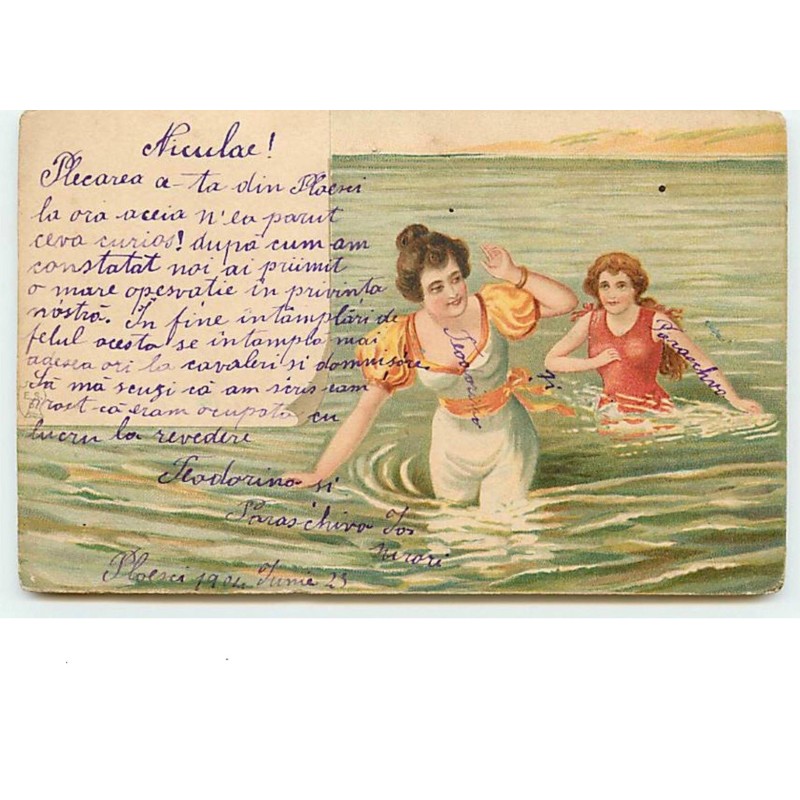 Niculae!
Plecarea a-ta din Ploesci
la ora aceia n'ea parut
ceva curios! după cum-am
constatat noi ai priimit
o mare opesvatie in privinta
nóstră. In fine intâmplări de
felul acesta se intâmplă mai
adesea ori la cavaleri si domnisore
Să mă scuzi că am scris cam
prost că eram ocupata cu
lucru la revedere
Teodorina si
Paraschiva
Ploesci 1904 Iunie 23
Teodorina
si
Paraschiva